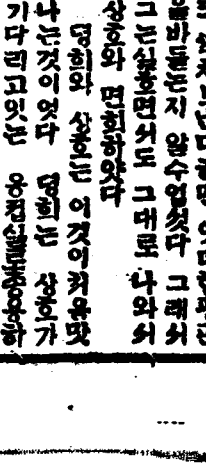 을바든는지 알수업섯다 그래서
그는실흐면서도 그대로 나와서
상호와 면회하얏다
덩희와 상호는 이것이처음맛
나는것이엇다 덩희는 상호가
기다리고잇는 응접실로